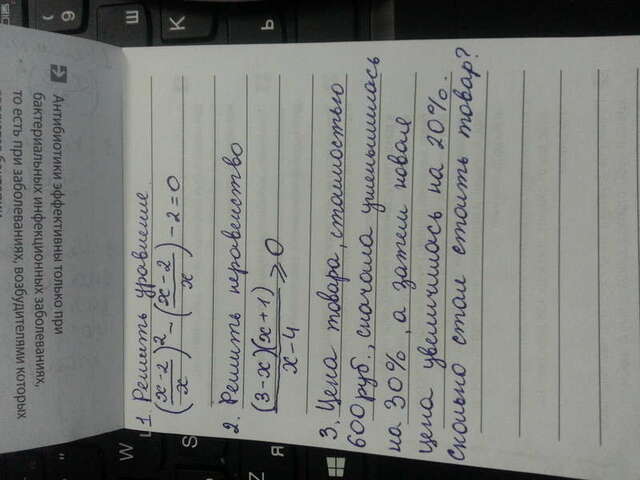 Антибиотики эффективны только при
бактериальных инфекционных заболеваниях,
то есть при заболеваниях, возбудителями которых
1. Решить уравнение
(x-2/x)² - (x-2/x) - 2 = 0
2. Решить неравенство
(3-x)(x+1)/x-4 ≥ 0
3. Цена товара, стоимостью
600 руб., сначала уменьшилась
на 30%, а затем новая
цена увеличилась на 20%.
Сколько стал стоить товар?
W
S
Z
Я
(
9
Ш
K
Ь